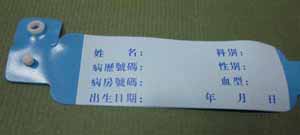 姓 名： 科別：
病歷號碼： 性別：
病房號碼： 血型：
出生日期： 年 月 日